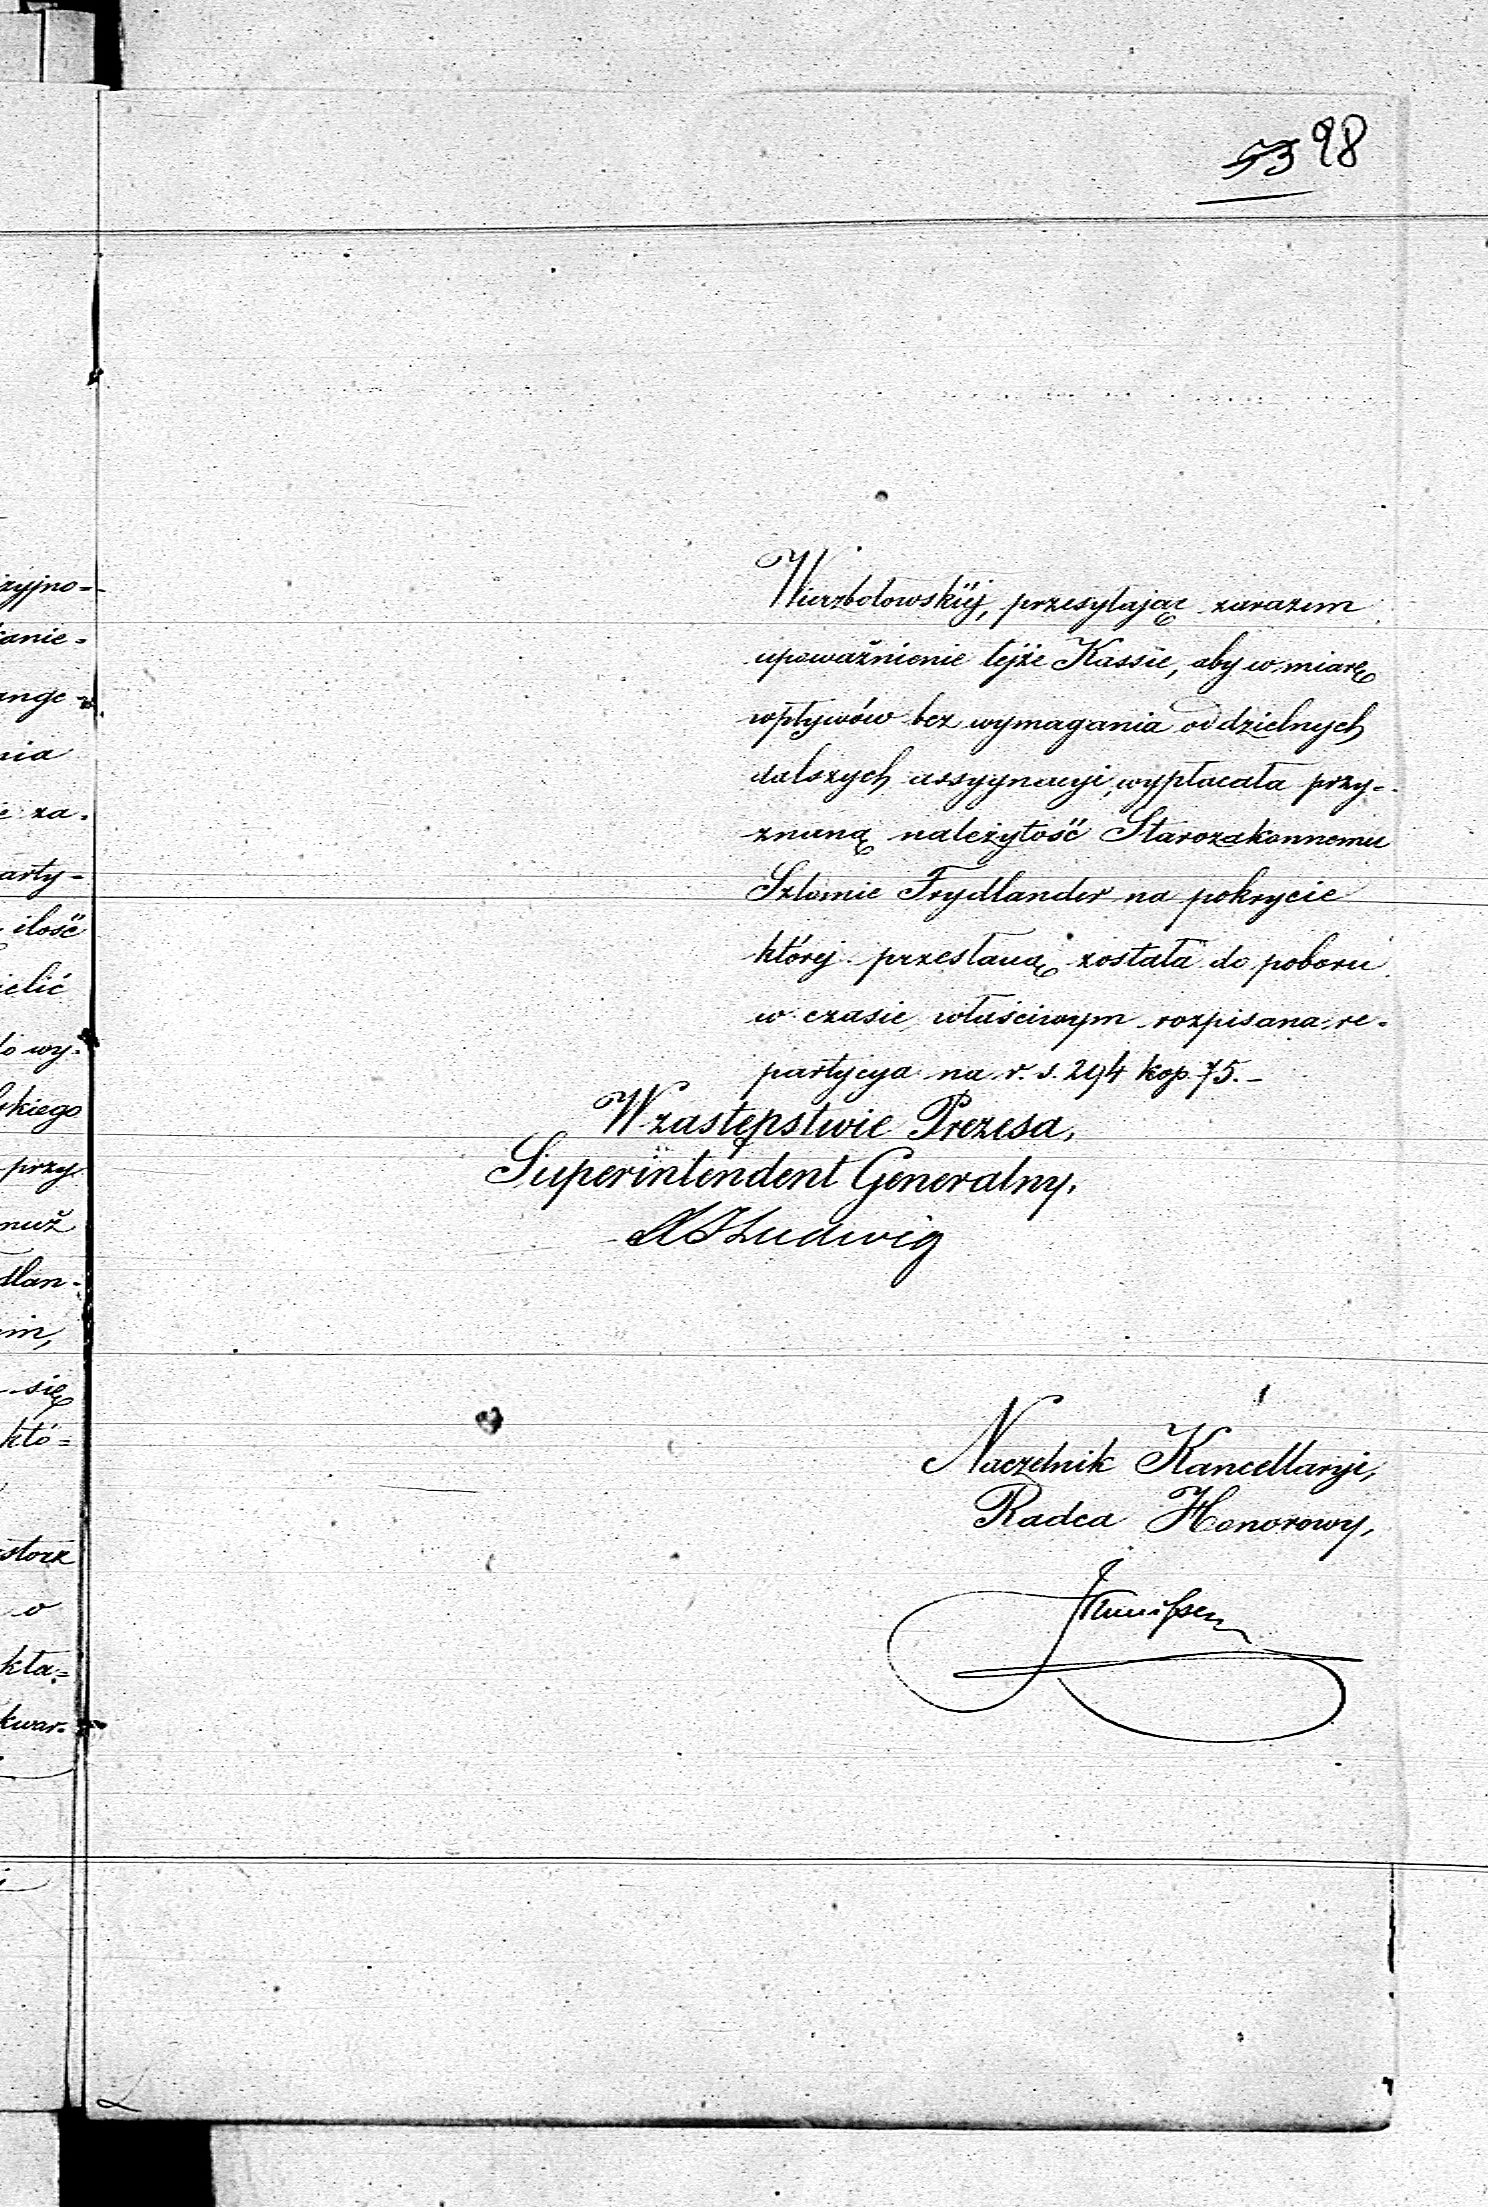 53 98
Wierzbołowskiéj, przesyłając zarazem
upoważnienie téjże Kassie, aby w miarę
wpływów bez wymagania oddzielnych
dalszych assygnacyi, wypłacała przy-
znaną należytość Starozakonnemu
Szlomie Frydlander na pokrycie
której przesłaną została do poboru
w czasie właściwym rozpisana re-
partycya na r. s. 294 kop. 75.-
W zastępstwie Prezesa,
Superintendent Generalny,
Ludwig
Naczelnik Kancellaryi,
Radca Honorowy,
zyjno-
anie-
ange
nia
za.
arty-
ilość
ielić
wy-
skiego
przy
nuż
dlan-
im,
się
któ-
storz
o
kła-
kwar-